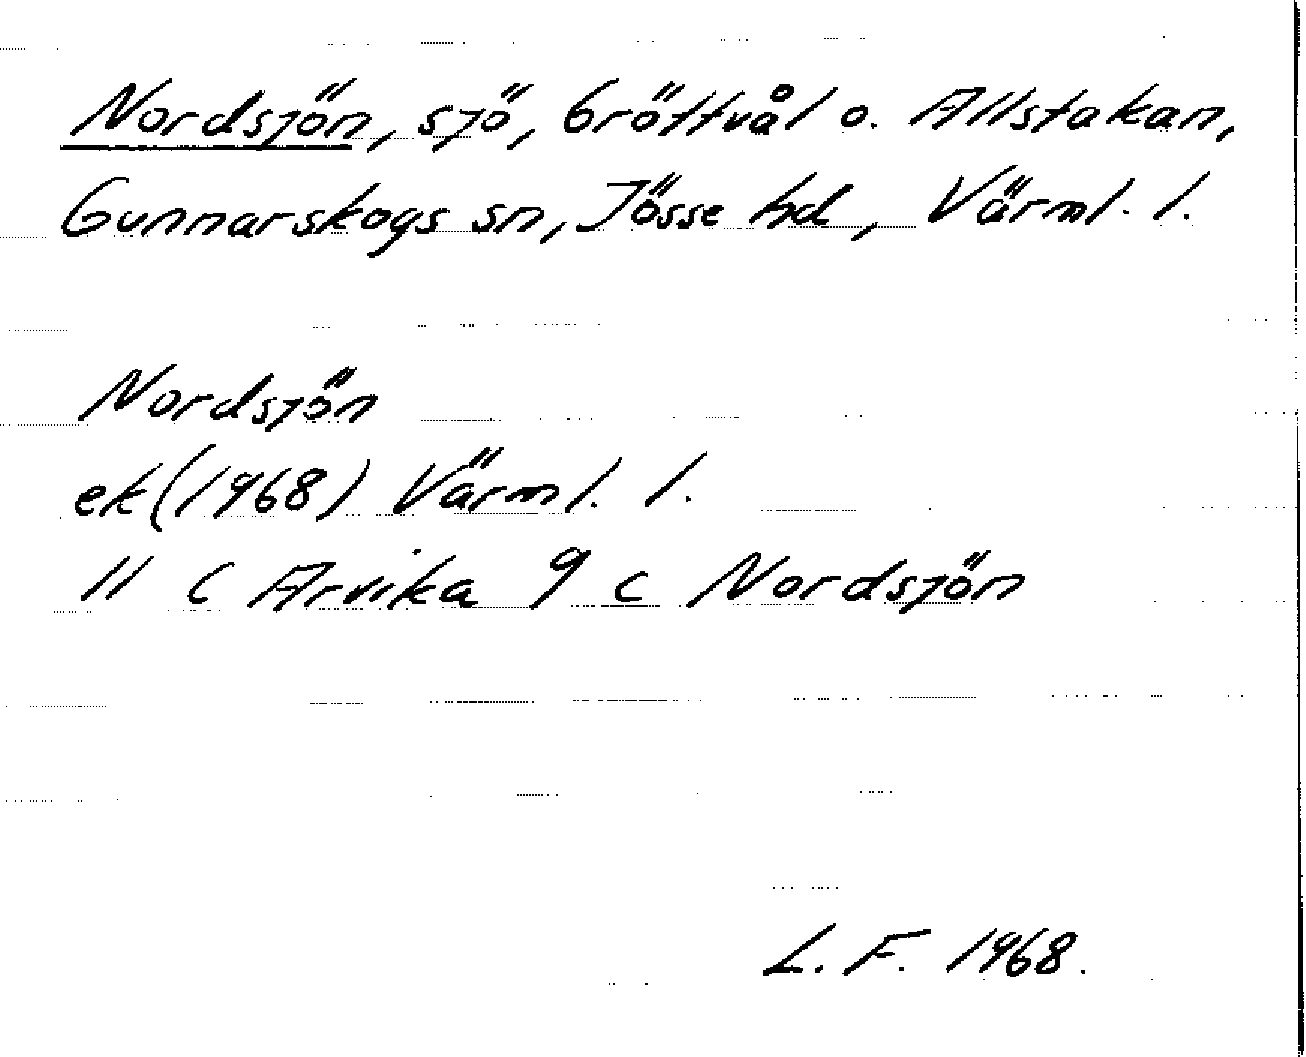 Nordsjön, sjö, Gröttvål o. Allstakan,
Gunnarskogs sn, Jösse hd, Värml. l.
Nordsjön
ek (1968) Värml. l.
11 C Arvika 9 c Nordsjön
L. F. 1968.